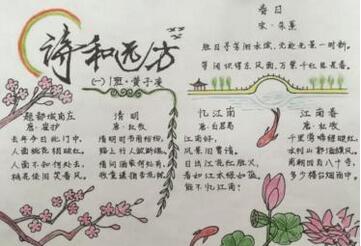 诗和远方
(一)1班·黄子
春日
宋·朱熹
胜日寻芳泗水滨,无边光景一时新。
等闲识得东风面,万紫千红总是春。
题都城南庄
唐·崔护
去年今日此门中,
人面桃花相映红。
人面不知何处去,
桃花依旧笑春风。
清明
唐·杜牧
清明时节雨纷纷,
路上行人欲断魂。
借问酒家何处有,
牧童遥指杏花村。
忆江南
唐·白居易
江南好,
风景旧曾谙。
日出江花红胜火,
春来江水绿如蓝。
能不忆江南?
江南春
唐·杜牧
千里莺啼绿映红,
水村山郭酒旗风。
南朝四百八十寺,
多少楼台烟雨中。